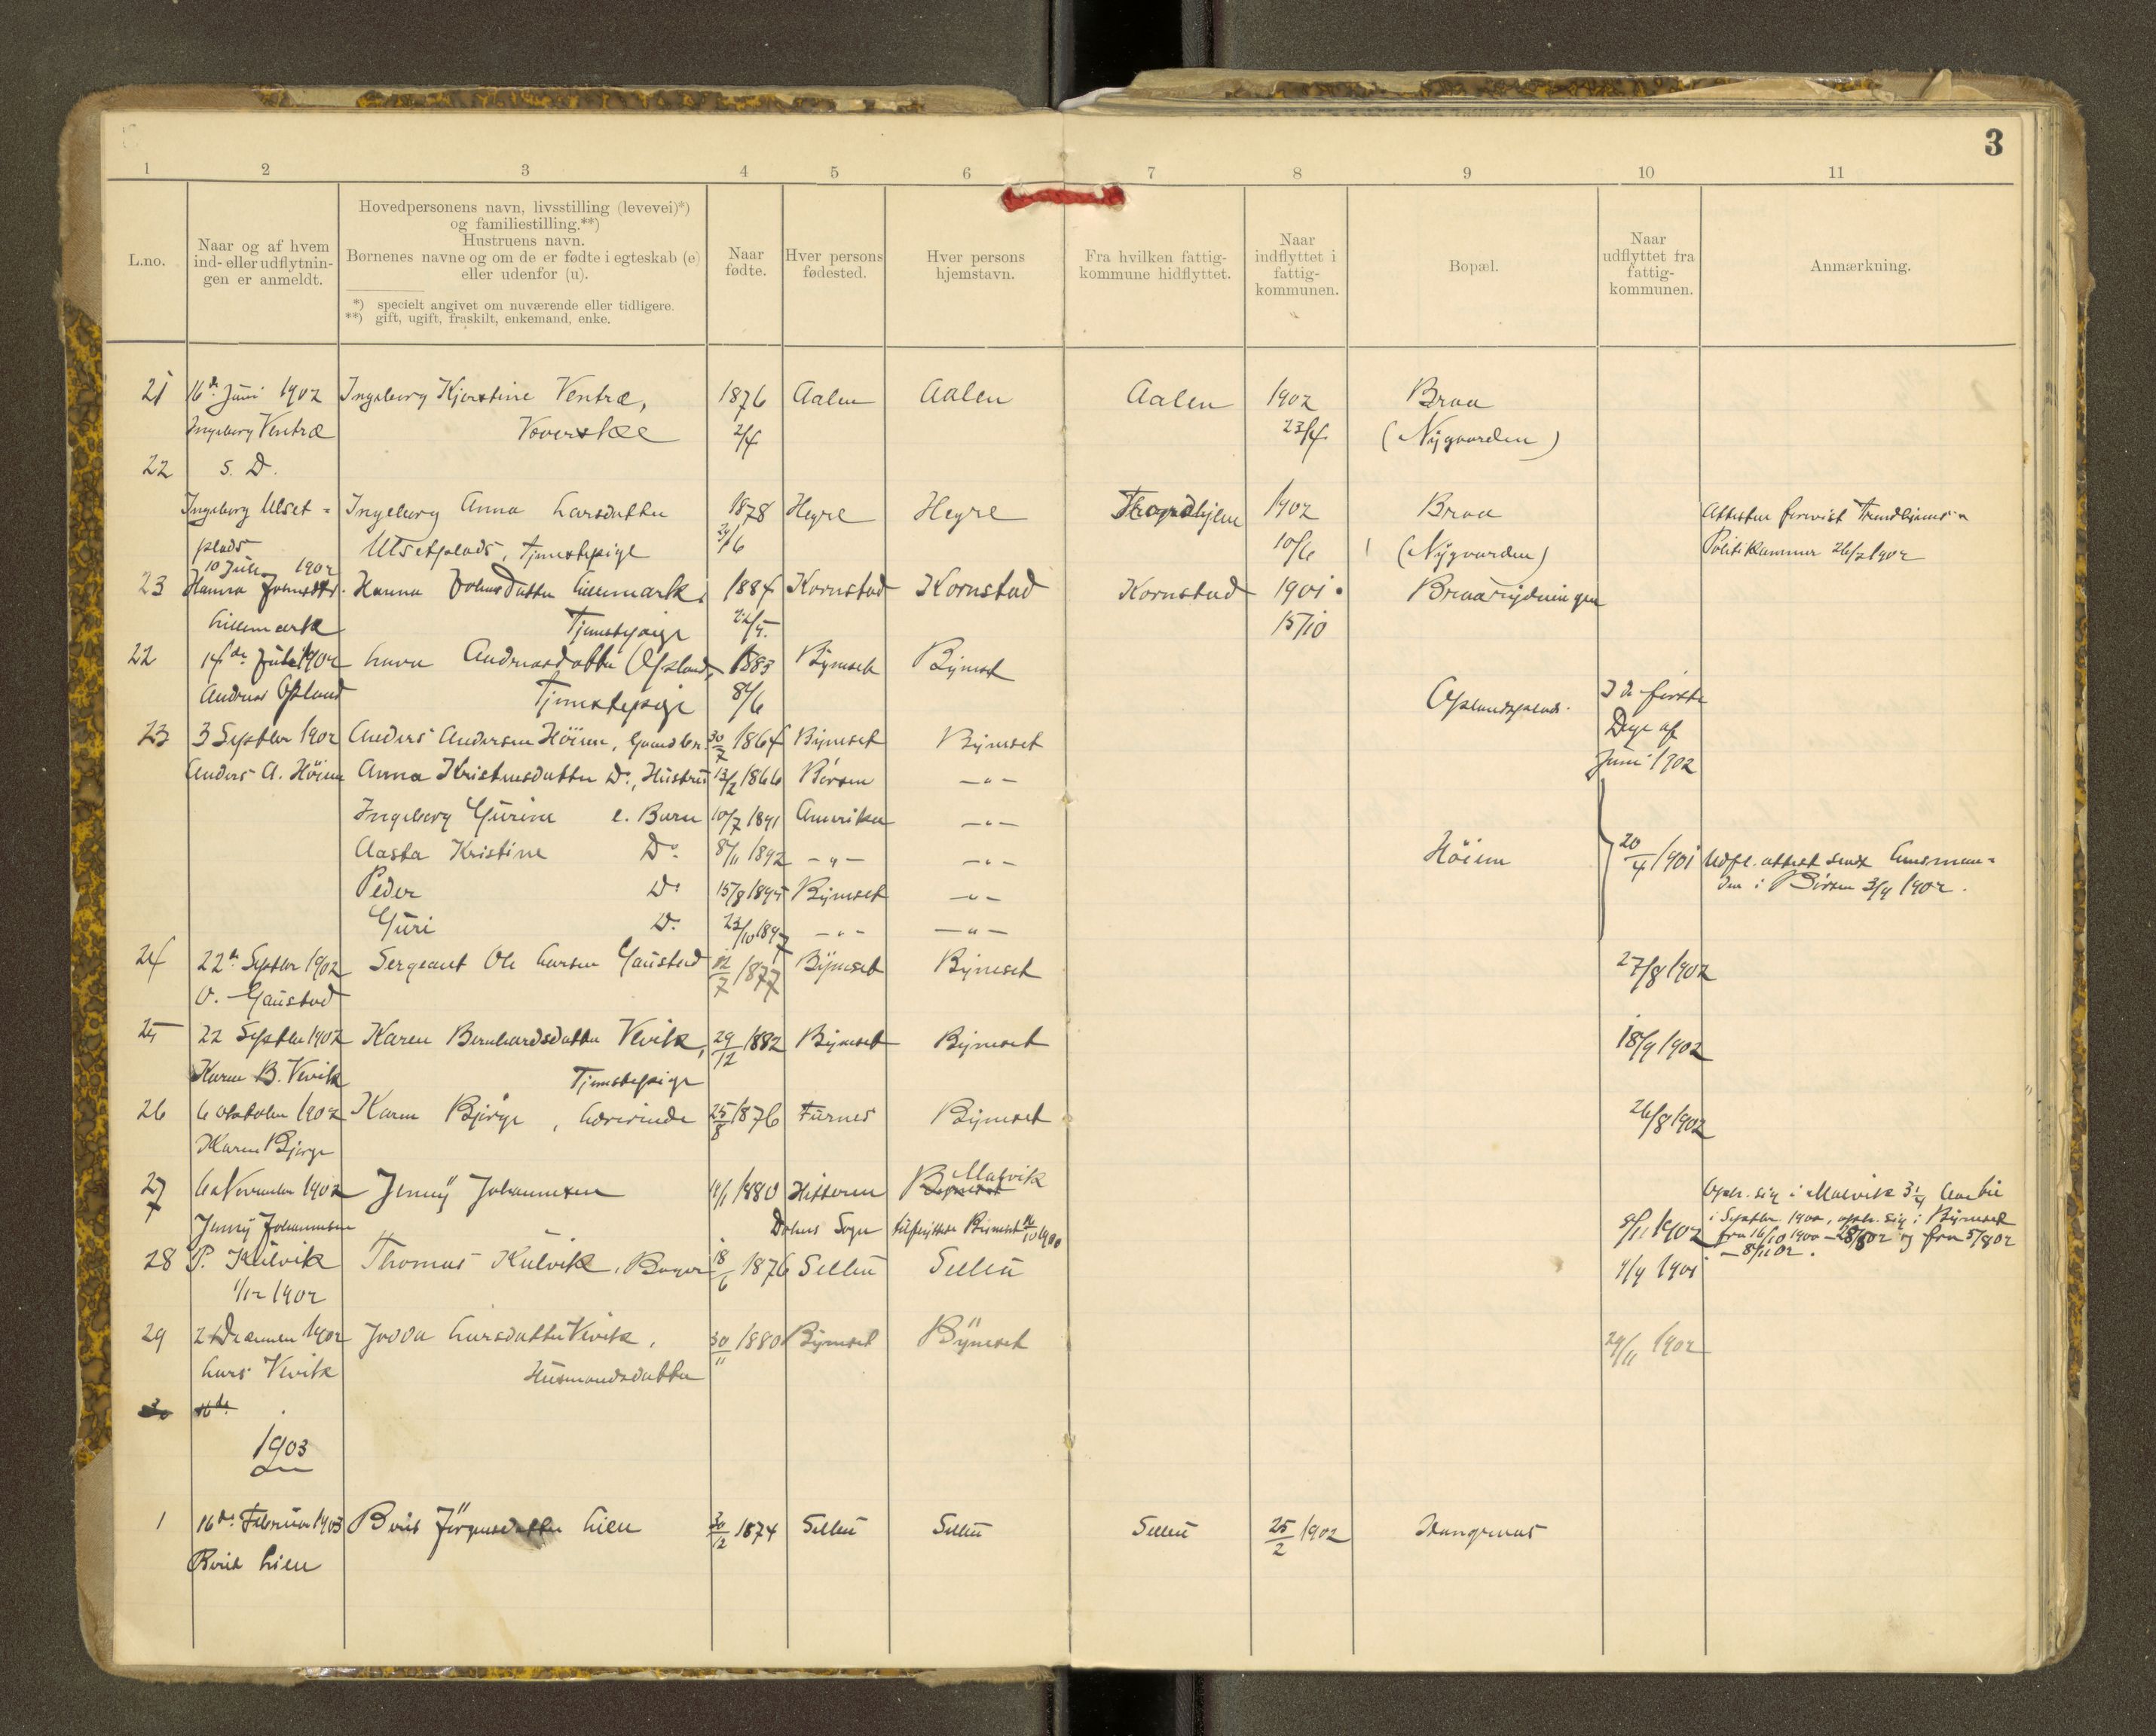 3
1 2 3 4 5 6 7 8 9 10 11
L.no.
Naar og af hvem
ind- eller udflytnin-
gen er anmeldt.
Hovedpersonens navn, livsstilling (levevei)*)
og familiestilling.**)
Hustruens navn.
Børnenes navne og om de er fødte i egteskab (e)
eller udenfor (u).
*) specielt angivet om nuværende eller tidligere.
**) gift, ugift, fraskilt, enkemand, enke.
Naar
fødte.
Hver persons
fødested.
Hver persons
hjemstavn.
Fra hvilken fattig-
kommune hidflyttet.
Naar
indflyttet i
fattig-
kommunen.
Bopæl.
Naar
udflyttet fra
fattig-
kommunen.
Anmærkning.
21 16de Juni 1902 Ingeborg Kjerstine Ventræ, 1876 Aalen Aalen Aalen 1902 Braa
Ingeborg Ventræ Væverske 2/4 23/4 (Nygaarden)
22 s. D.
Ingeborg Ulset= Ingeborg Anna Larsdatter 1878 Hegre Hegre Trondhjem 1902 Braa Attesten forevist Trondhjems
plads Ulsetplads, Tjenestepige 29/6 10/6 (Nygaarden) Politikammer 26/2 1902
10 Juli 1902
23 Hanna Johnsdtr. Hanna Johnsdatter Lillemark, 1884 Kornstad Kornstad Kornstad 1901 Braarydningen
Lillemark Tjenestepige 22/5. 15/10
22 14de Juli 1902 Andreasdatter Opland, 1883 Bynesset Bynesset
Andreas Opland Tjenestepige 8/6 Oplandsplads. I de første
Dage af
Juni 1902
23 3 Septbr 1902 Anders Andersen Höiem, 30/7 1864 Bynesset Bynesset
Anders A. Höiem Anna Kristensdatter Do, Hustru 13/2 1866 Börsen —"—
Ingeborg Gurine e. Barn 10/7 1891 Amerika —"—
Aasta Kristine Do 8/11 1892 —"— —"— Höiem 20/4 1901 Udfl. attest sendt Lensman=
Peder Do 15/8 1895 Bynesset —"— den i Börsen 3/9 1902.
Guri Do 23/10 1897 —"— —"—
24 22de Septbr 1902 Sergeant Ole Larsen Gaustad 12/7 1877 Bynesset Bynesset 27/8 1902
O. Gaustad
25 22 Septbr 1902 Karen Bernhardsdatter Vevik, 29/12 1882 Bynesset Bynesset 18/9 1902
Karen B. Vevik Tjenestepige
26 6 Oktober 1902 Karen Björge, Lærerinde 25/8 1876 Furnes Bynesset 26/8 1902
Karen Björge
27 6 November 1902 Jenny Johannesen 1880 Hitteren Bynesset Malvik Oph. sig i Malvik
Jenny Johannesen Dolms Sogn tilflyttede Bynesset 16/10 1900 8/11 1902 i Septbr 1900, oph. sig i Bynesset
fra 16/10 1900 — 28/5 02 og fra 5/8 02
— 8/11 02.
28 P. Kulvik Thomas Kulvik, Bager 18/6 1876 Selbu Selbu 4/9 1901
1/12 1902
29 2 December 1902 Larsdatter Vevik, 30/11 1880 Bynesset Bynesset 29/11 1902
Lars Vevik Husmandsdatter
30 16de
1903
1 16de Februar 1903 Berit Jörgensdatter Lien 30/12 1874 Selbu Selbu Selbu 25/2 1902
Berit Lien